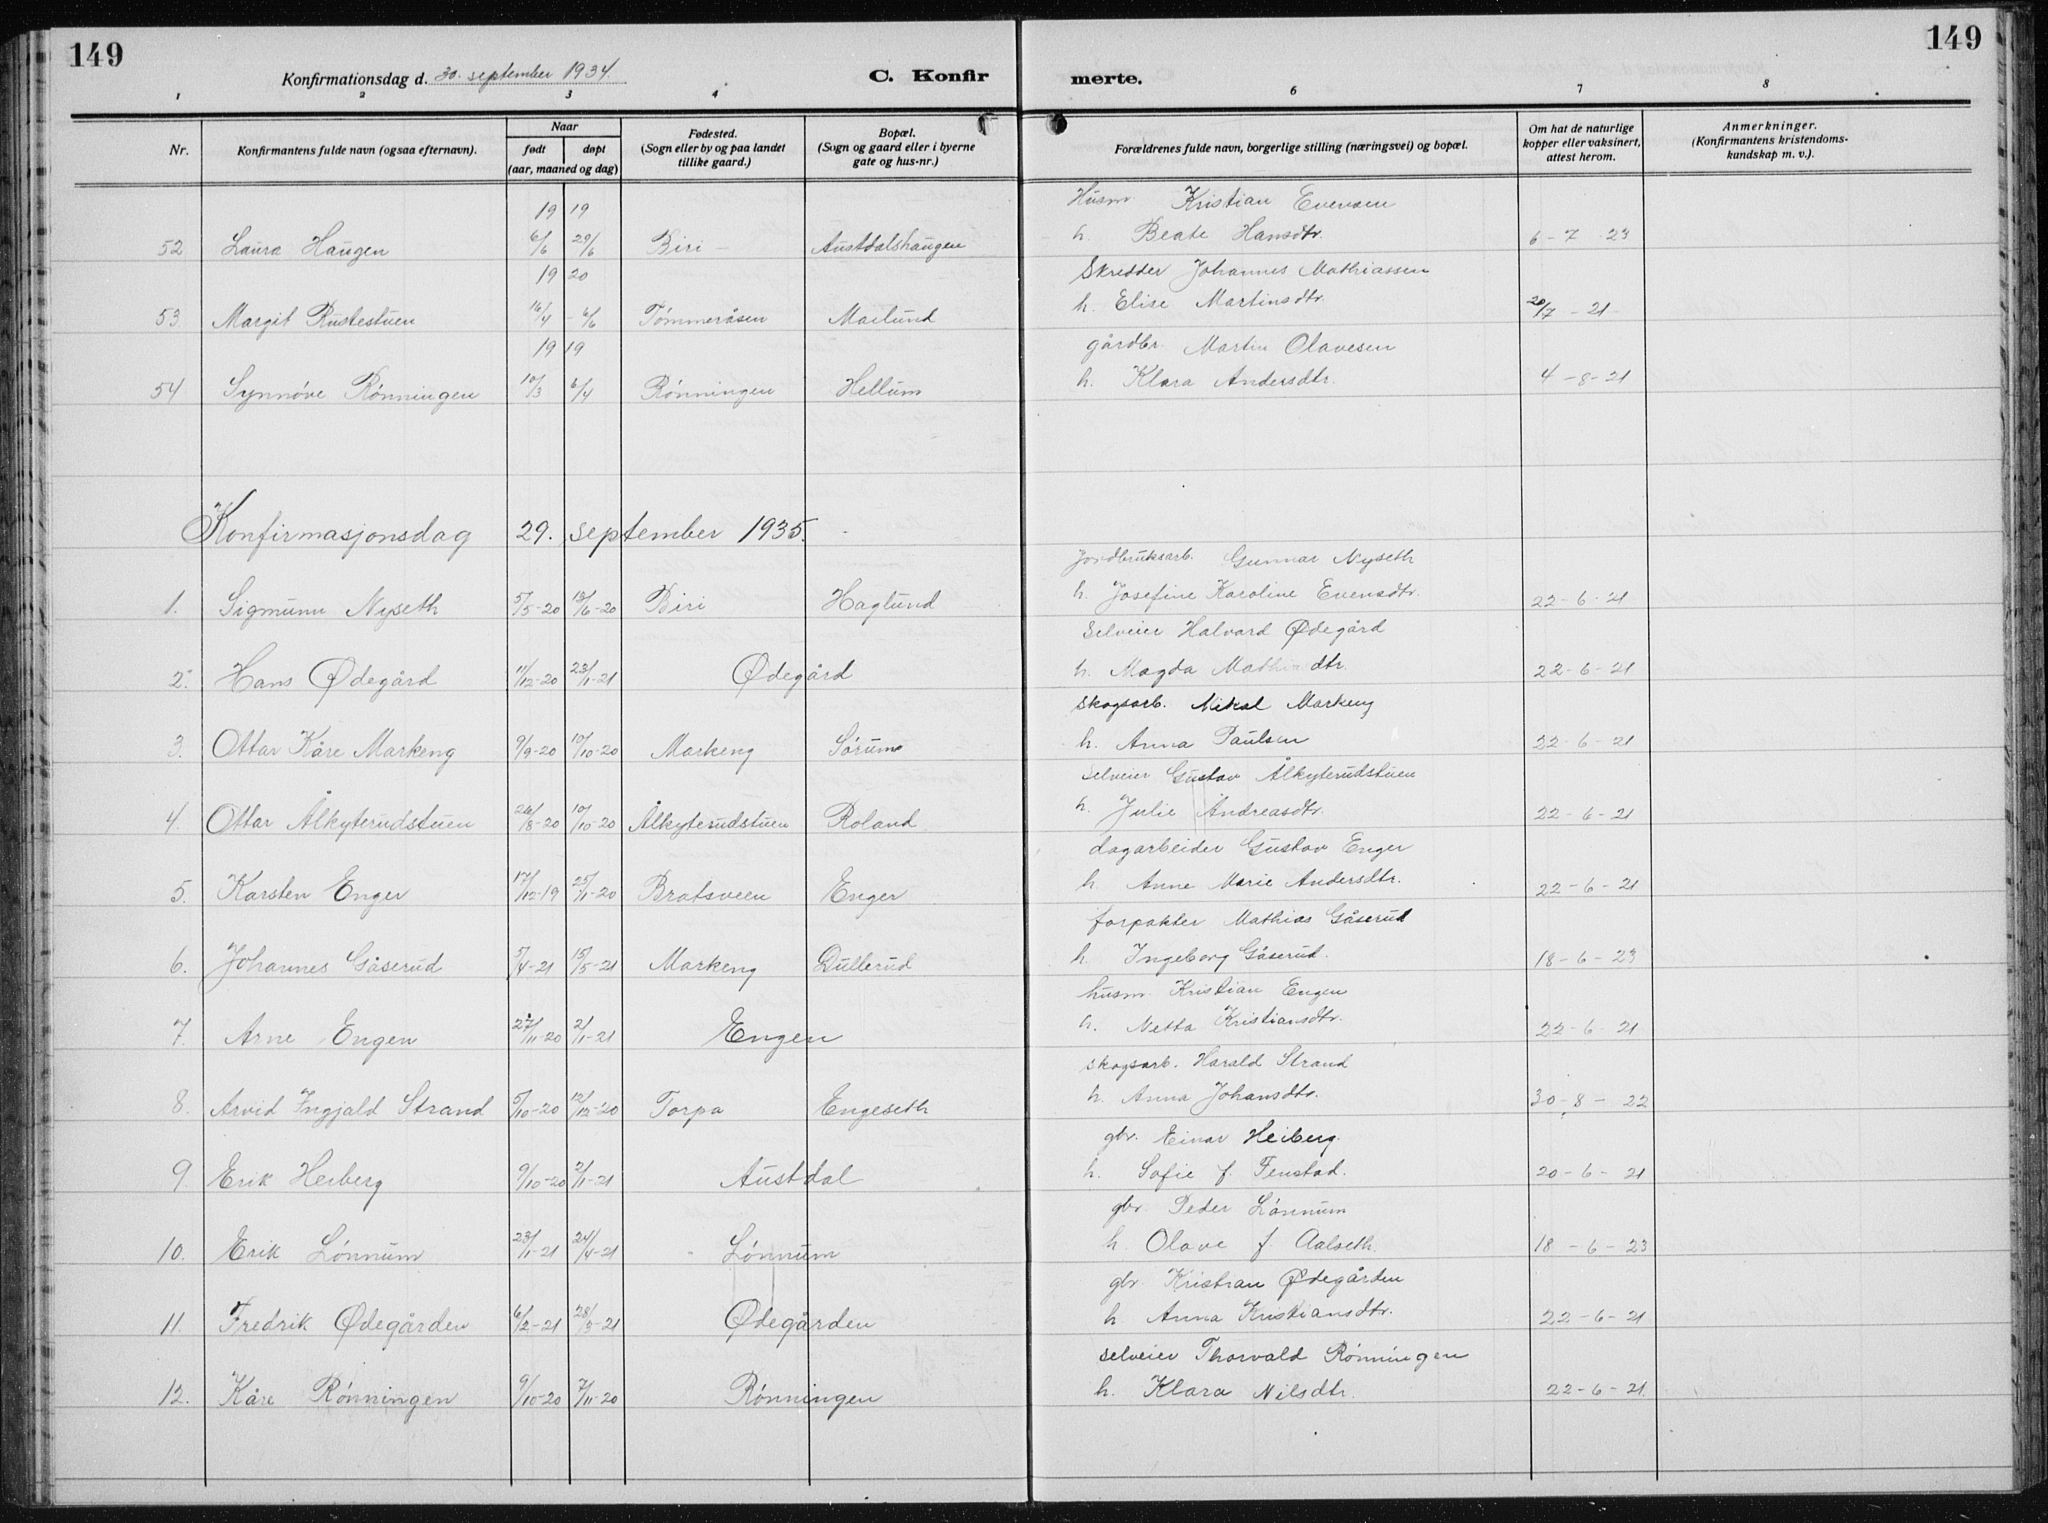 149
149
Konfirmationsdag d. 30. september 1934.
C. Konfir
merte.
1 2 3 4 6 7 8
Nr.
Konfirmantens fulde navn (ogsaa efternavn).
Naar
født døpt
(aar, maaned og dag)
Fødested.
(Sogn eller by og paa landet
tillike gaard.)
Bopæl.
(Sogn og gaard eller i byerne
gate og hus-nr.)
Forældrenes fulde navn, borgerlige stilling (næringsvei) og bopæl.
Om hat de naturlige
kopper eller vaksinert,
attest herom.
Anmerkninger.
(Konfirmantens kristendoms-
kundskap m. v.).
19 19 Husm. Kristian Evensen
52 Laura Haugen 6/6 29/6 Biri - Austdalshaugen h. Beate Hansdtr. 6 - 7 23
19 20 Skredder Johannes Mathiassen
53 Margit Rustestuen 16/4 - 6/6 Tømmeråsen Moelund h. Elise Martinsdtr. 20/7 - 21
19 19 gårdbr. Martin Olavesen
54 Synnøve Rønningen 10/3 6/4 Rønningen Hellum h. Klara Andersdtr. 4 - 8 - 21
Konfirmasjonsdag 29. september 1935.
Jordbruksarb. Gunnar Nyseth
1. Sigmunn Nyseth 5/5-20 13/6-20 Biri Haglund h. Josefine Karoline Evensdtr. 22-6-21
Selveier Halvard Ødegård
2. Hans Ødegård 11/12-20 23/1-21 Ødegård h. Magda Mathiasdtr. 22-6-21
Skogsarb. Mikal Markeng
3. Ottar Kåre Markeng 9/9-20 10/10-20 Markeng Sørum h. Anna Paulsen 22-6-21
Selveier Gustav Ålkyterudstuen
4. Ottar Ålkyterudstuen 26/8-20 10/10-20 Ålkyterudstuen Roland h. Julie Andreasdtr. 22-6-21
dagarbeider Gustav Enger
5. Karsten Enger 17/12-19 25/1-20 Bratsveen Enger h. Anne Marie Andersdtr. 22-6-21
forpakter Mathias Gåserud
6. Johannes Gåserud 5/4-21 15/5-21 Markeng Dullerud h. Ingeborg Gåserud. 18-6-23
husm. Kristian Engen
7. Arne Engen 27/11-20 2/1-21 Engen h. Netta Kristiansdtr. 22-6-21
skogsarb. Harald Strand
8. Arvid Ingjald Strand 5/10-20 12/12-20 Torpa Engeseth h. Anna Johansdtr. 30-8-22
gbr. Einar Heiberg.
9. Erik Heiberg 9/10-20 2/1-21 Austdal h. Sofie f. Fenstad. 20-6-21
gbr. Peder Lønnum
10. Erik Lønnum 23/1-21 24/4-21 Lønnum h. Olave f. Aalseth. 18-6-23
gbr. Kristian Ødegården
11. Fredrik Ødegården 6/2-21 28/3-21 Ødegården h. Anna Kristiansdtr. 22-6-21
selveier Thorvald Rønningen
12. Kåre Rønningen 9/10-20 7/11-20 Rønningen h. Klara Nilsdtr. 22-6-21